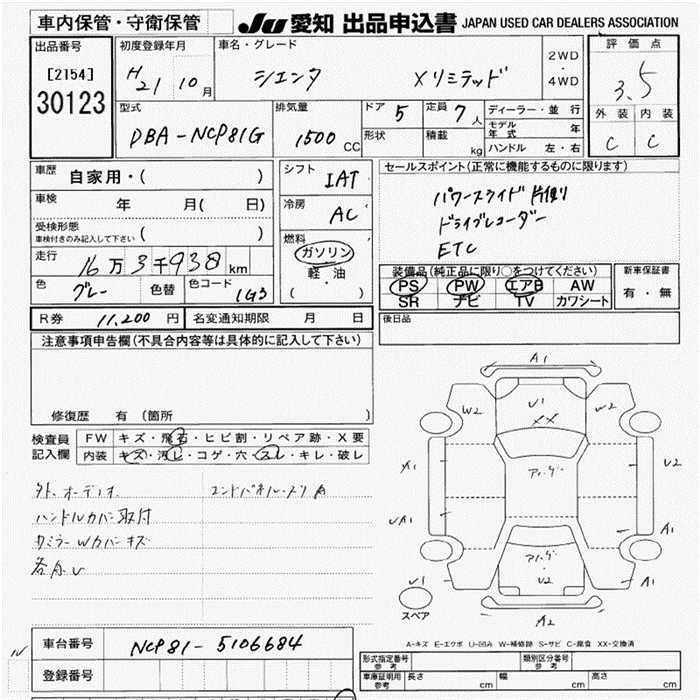 車内保管・守衛保管 JU 愛知 出品申込書 JAPAN USED CAR DEALERS ASSOCIATION
出品番号 初度登録年月 車名・グレード 2WD ・ 4WD 評価点
[2154] H21 10月 シエンタ Xリミテッド 3.5
30123
型式 排気量 ドア 5 定員 7人 ディーラー・並行 外装 内装
DBA-NCP81G 1500 CC 形状 積載 kg モデル年式 年 C C
ハンドル 左・右
車歴 自家用・( ) シフト IAT セールスポイント(正常に機能するものに限ります)
車検 年 月( 日) 冷房 AC パワースライド片側
受検形態 ( ) ドライブレコーダー
車検付きのみ記入して下さい
走行 16万3千938km 燃料 ガソリン ETC
軽・油
色 グレー 色替 色コード 1G3 ( )
装備品(純正品に限り○をつけてください) 新車保証書
PS PW エアB AW 有・無
SR ナビ TV カワシート
R券 11,200円 名変通知期限 月 日 後日品
注意事項申告欄(不具合内容等は具体的に記入して下さい)
修復歴 有(箇所 )
検査員記入欄 FW キズ・飛石・ヒビ割・リペア跡・X要
内装 キズ・汚レ・コゲ・穴・スレ・キレ・破レ
外.オーディオ
ハンドルカバー取付
各ドU
A1
W2 U1 W2
XX
A1 U2
UA1 A1
U1 U2 A1
スペア A2
A-キズ E-エクボ U-凹み W-補修跡 S-サビ C-腐食 XX-交換済
車台番号 NCP81-5106684
登録番号
形式指定番号 参考 類別区分番号 参考
車庫証明用 参考 長さ cm 幅 cm 高さ cm